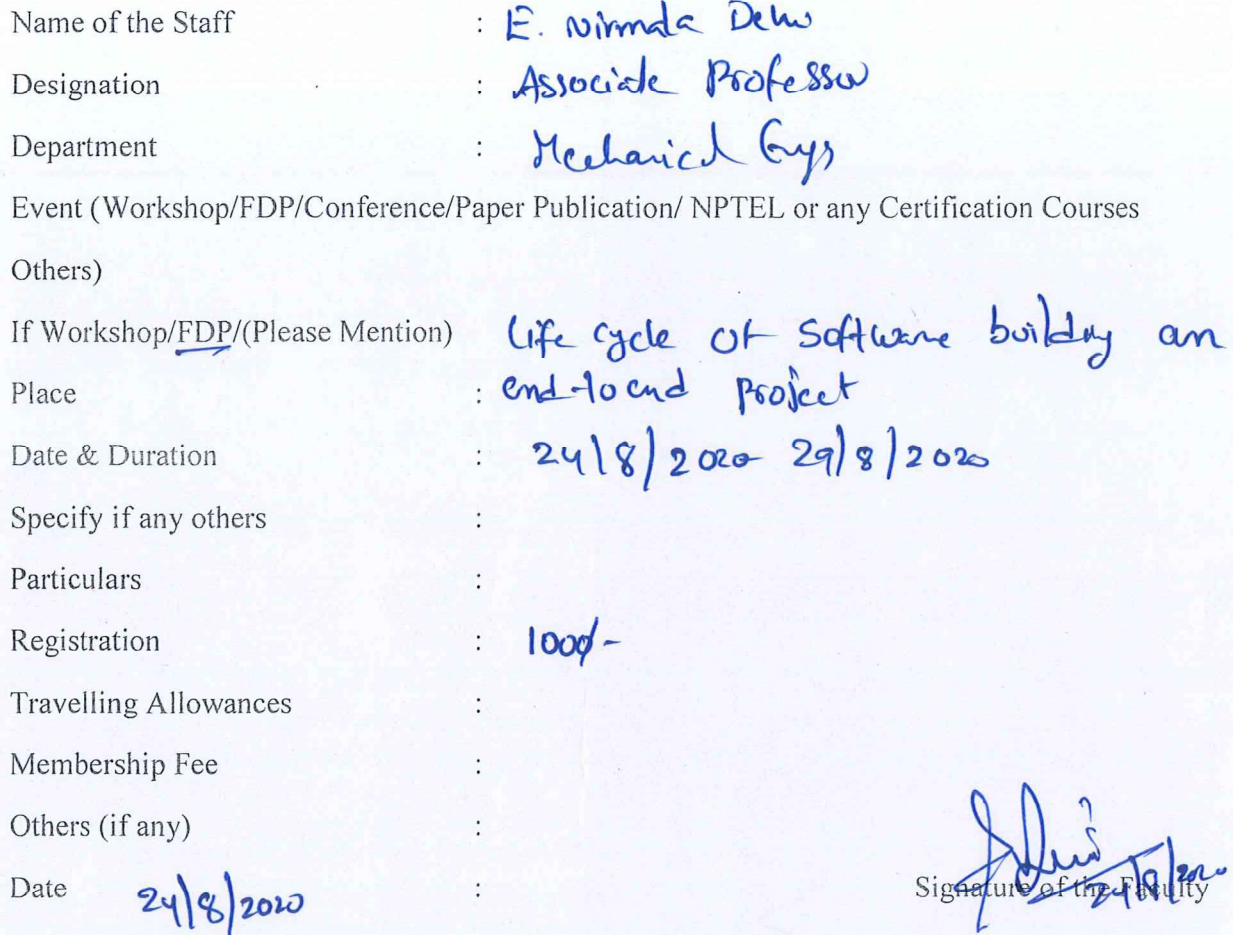 Name of the Staff : E. Nirmala Devi
Designation : Associate Professor
Department : Mechanical Engg
Event (Workshop/FDP/Conference/Paper Publication/ NPTEL or any Certification Courses
Others)
If Workshop/FDP/(Please Mention) Life cycle of Software building an
Place : end-to end project
Date & Duration : 24/8/2020 29/8/2020
Specify if any others :
Particulars :
Registration : 1000/-
Travelling Allowances :
Membership Fee :
Others (if any) :
Date 24/8/2020 : Signature of the Faculty 24/8/2020